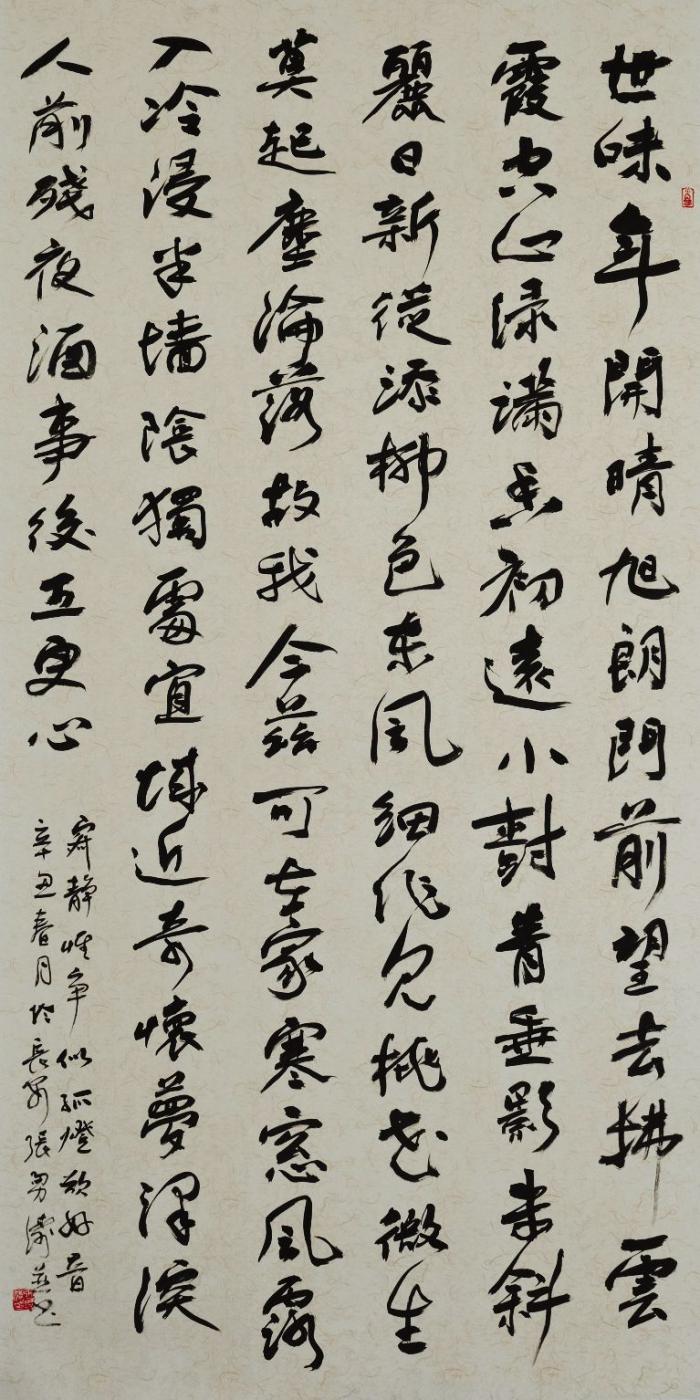 世味年開晴旭朗門前望去拂雲
霞空心綠滿香初遠小樹菁垂影未斜
麗日新從添柳色東風細作見桃花微生
莫起塵淪落故我今茲可在家寒窓風露
入冷浸半墻陰獨處宜城近奇懷夢深
人前殘夜酒事後五更心
寂靜惟爭似孤燈欲好音
辛丑春月於長安張勇濤并書